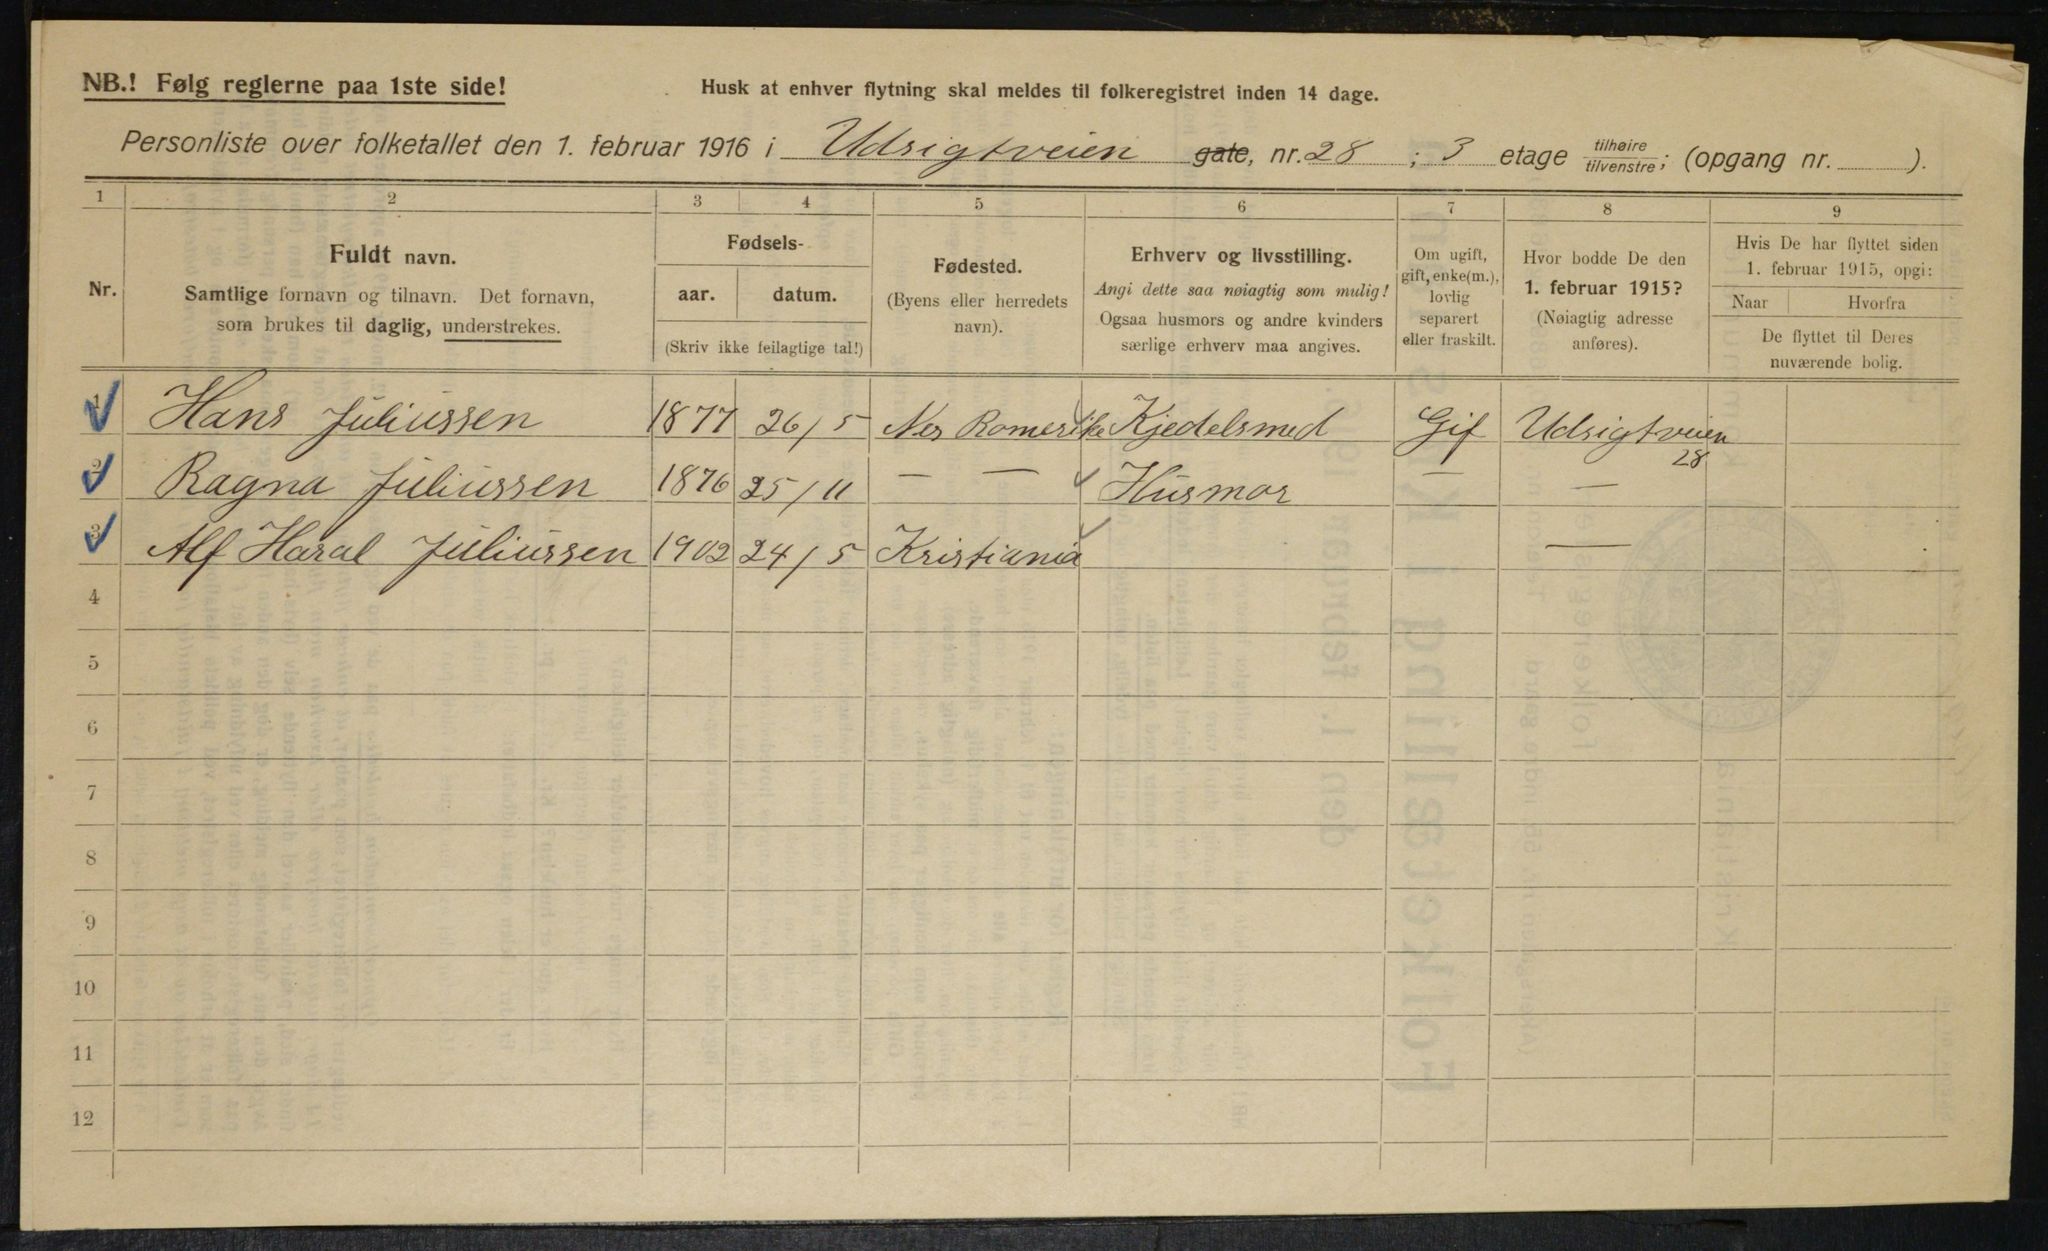 NB.! Følg reglerne paa 1ste side!
Husk at enhver flytning skal meldes til folkeregistret inden 14 dage.
Personliste over folketallet den 1. februar 1916 i Udsigtveien gate, nr. 28 ; 3 etage tilhøire/tilvenstre; (opgang nr. ).
1 2 3 4 5 6 7 8 9
Nr.
Fuldt navn.
Samtlige fornavn og tilnavn. Det fornavn,
som brukes til daglig, understrekes.
Fødsels-
aar. datum.
(Skriv ikke feilagtige tal!)
Fødested.
(Byens eller herredets
navn).
Erhverv og livsstilling.
Angi dette saa nøiagtig som mulig!
Ogsaa husmors og andre kvinders
særlige erhverv maa angives.
Om ugift,
gift, enke(m.),
lovlig
separert
eller fraskilt.
Hvor bodde De den
1. februar 1915?
(Nøiagtig adresse
anføres).
Hvis De har flyttet siden
1. februar 1915, opgi:
Naar Hvorfra
De flyttet til Deres
nuværende bolig.
1 Hans Juliussen 1877 26/5 Nes Romerike Kjedelsmed Gif Udsigtveien
28
2 Ragna Juliussen 1876 25/11 — — Husmor — —
3 Alf Haral Juliussen 1902 24/5 Kristiania —
4
5
6
7
8
9
10
11
12